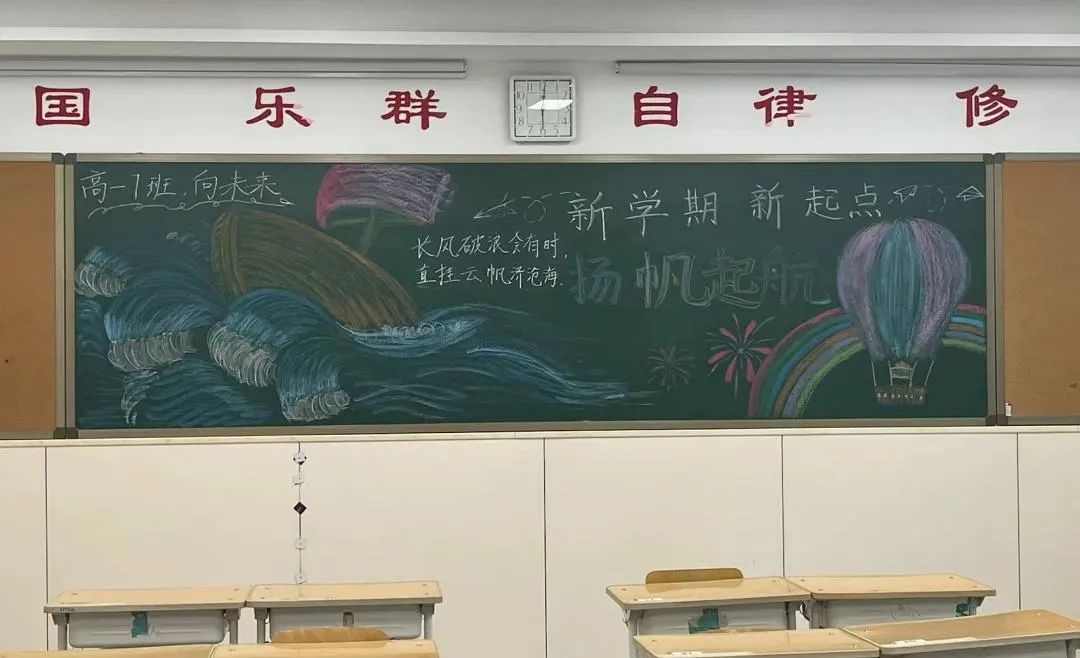 国 乐 群 自 律 修
高一1班,向未来
长风破浪会有时,
直挂云帆济沧海.
新学期 新起点
扬帆起航